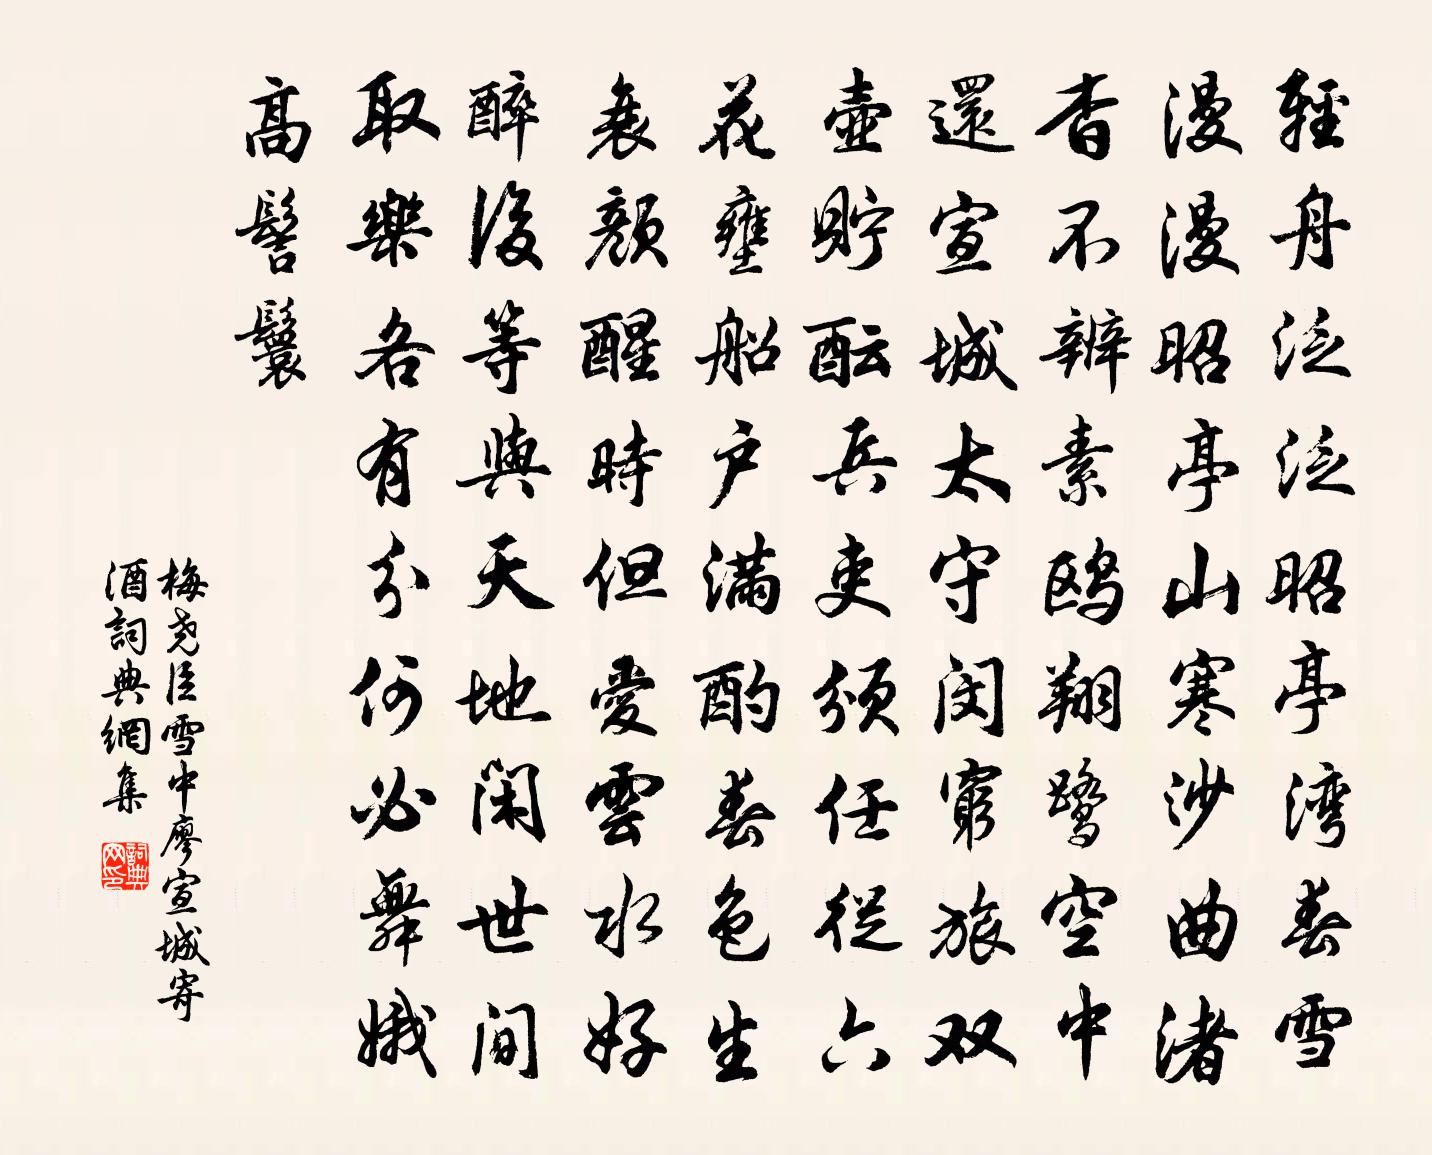 輕舟泛泛昭亭湾春雪
漫漫昭亭山寒沙曲渚
杳不辨素鸥翔鹭空中
還宣城太守闵窮旅双
壺貯酝兵吏颁任從六
花壅船户滿酌春色生
衰颜醒時但愛雲水好
醉後等與天地闲世间
取樂各有分何必舞娥
高髻鬟
梅尧臣雪中廖宣城寄
酒詞典網集
詞典
网印